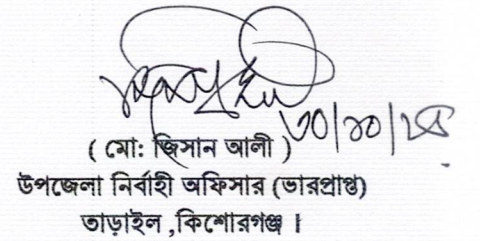 ৩০/১০/২৫
( মো: জিসান আলী )
উপজেলা নির্বাহী অফিসার (ভারপ্রাপ্ত)
তাড়াইল ,কিশোরগঞ্জ ।